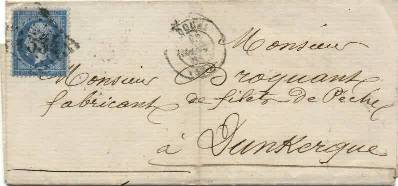 DOUAI
Monsieur
Monsieur Broquant
fabricant de filets de Pêche
à Dunkerque